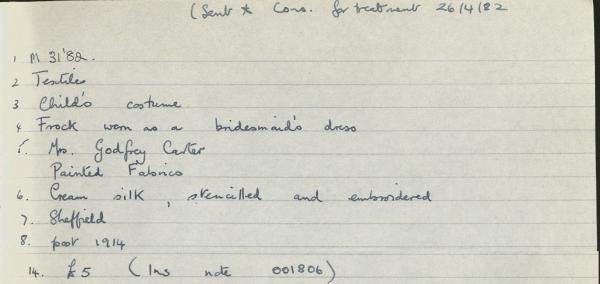 (Sent to Cons. for treatment 26/4/82
1 M 31'82.
2 Textiles
3 Child's costume
4 Frock worn as a bridesmaid's dress
5. Mrs. Godfrey Carter
Painted Fabrics
6. Cream silk, stencilled and embroidered
7. Sheffield
8. post 1914
14. £5 (Ins note 001806)